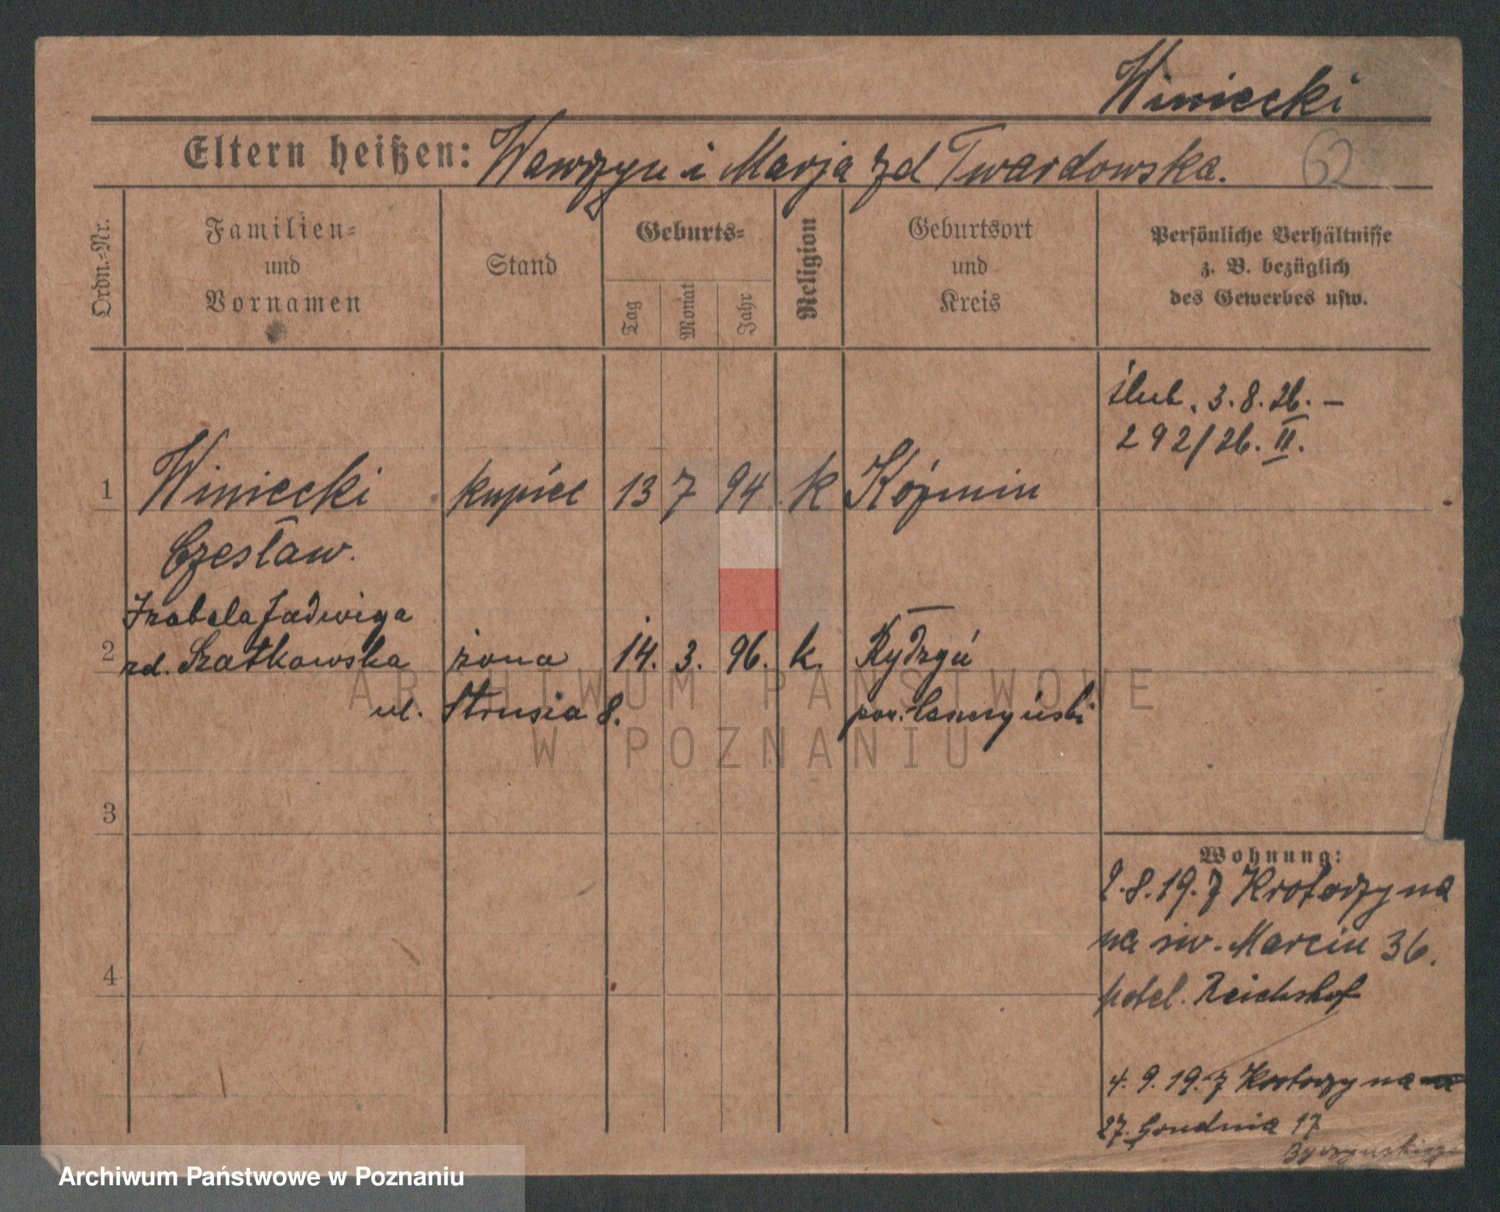 Winiecki
Eltern heißen: Wawrzyn i Marja zd Twardowska.
62
Ordn.-Nr.
Familien- und Vornamen
Stand
Geburts-
Tag
Monat
Jahr
Religion
Geburtsort und Kreis
Persönliche Verhältnisse
z. B. bezüglich
des Gewerbes usw.
ślub. 3.8.26. —
292/26. II.
1 Winiecki kupiec 13 7 94 k Koźmin
Czesław.
Izabela Jadwiga
2 zd. Szatkowska żona 14. 3. 96. k. Rydzyń
ul. Strusia 8. pow.
3
4
Wohnung:
2.8.19.7 Krotoszyna
na św. Marcin 36.
hotel. Reichshof
4.9.19.7 Krotoszyna
27. Grudnia 17
ARCHIWUM PAŃSTWOWE
W POZNANIU
Archiwum Państwowe w Poznaniu